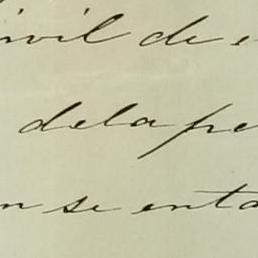 ivil de e
dela pe
n se enta